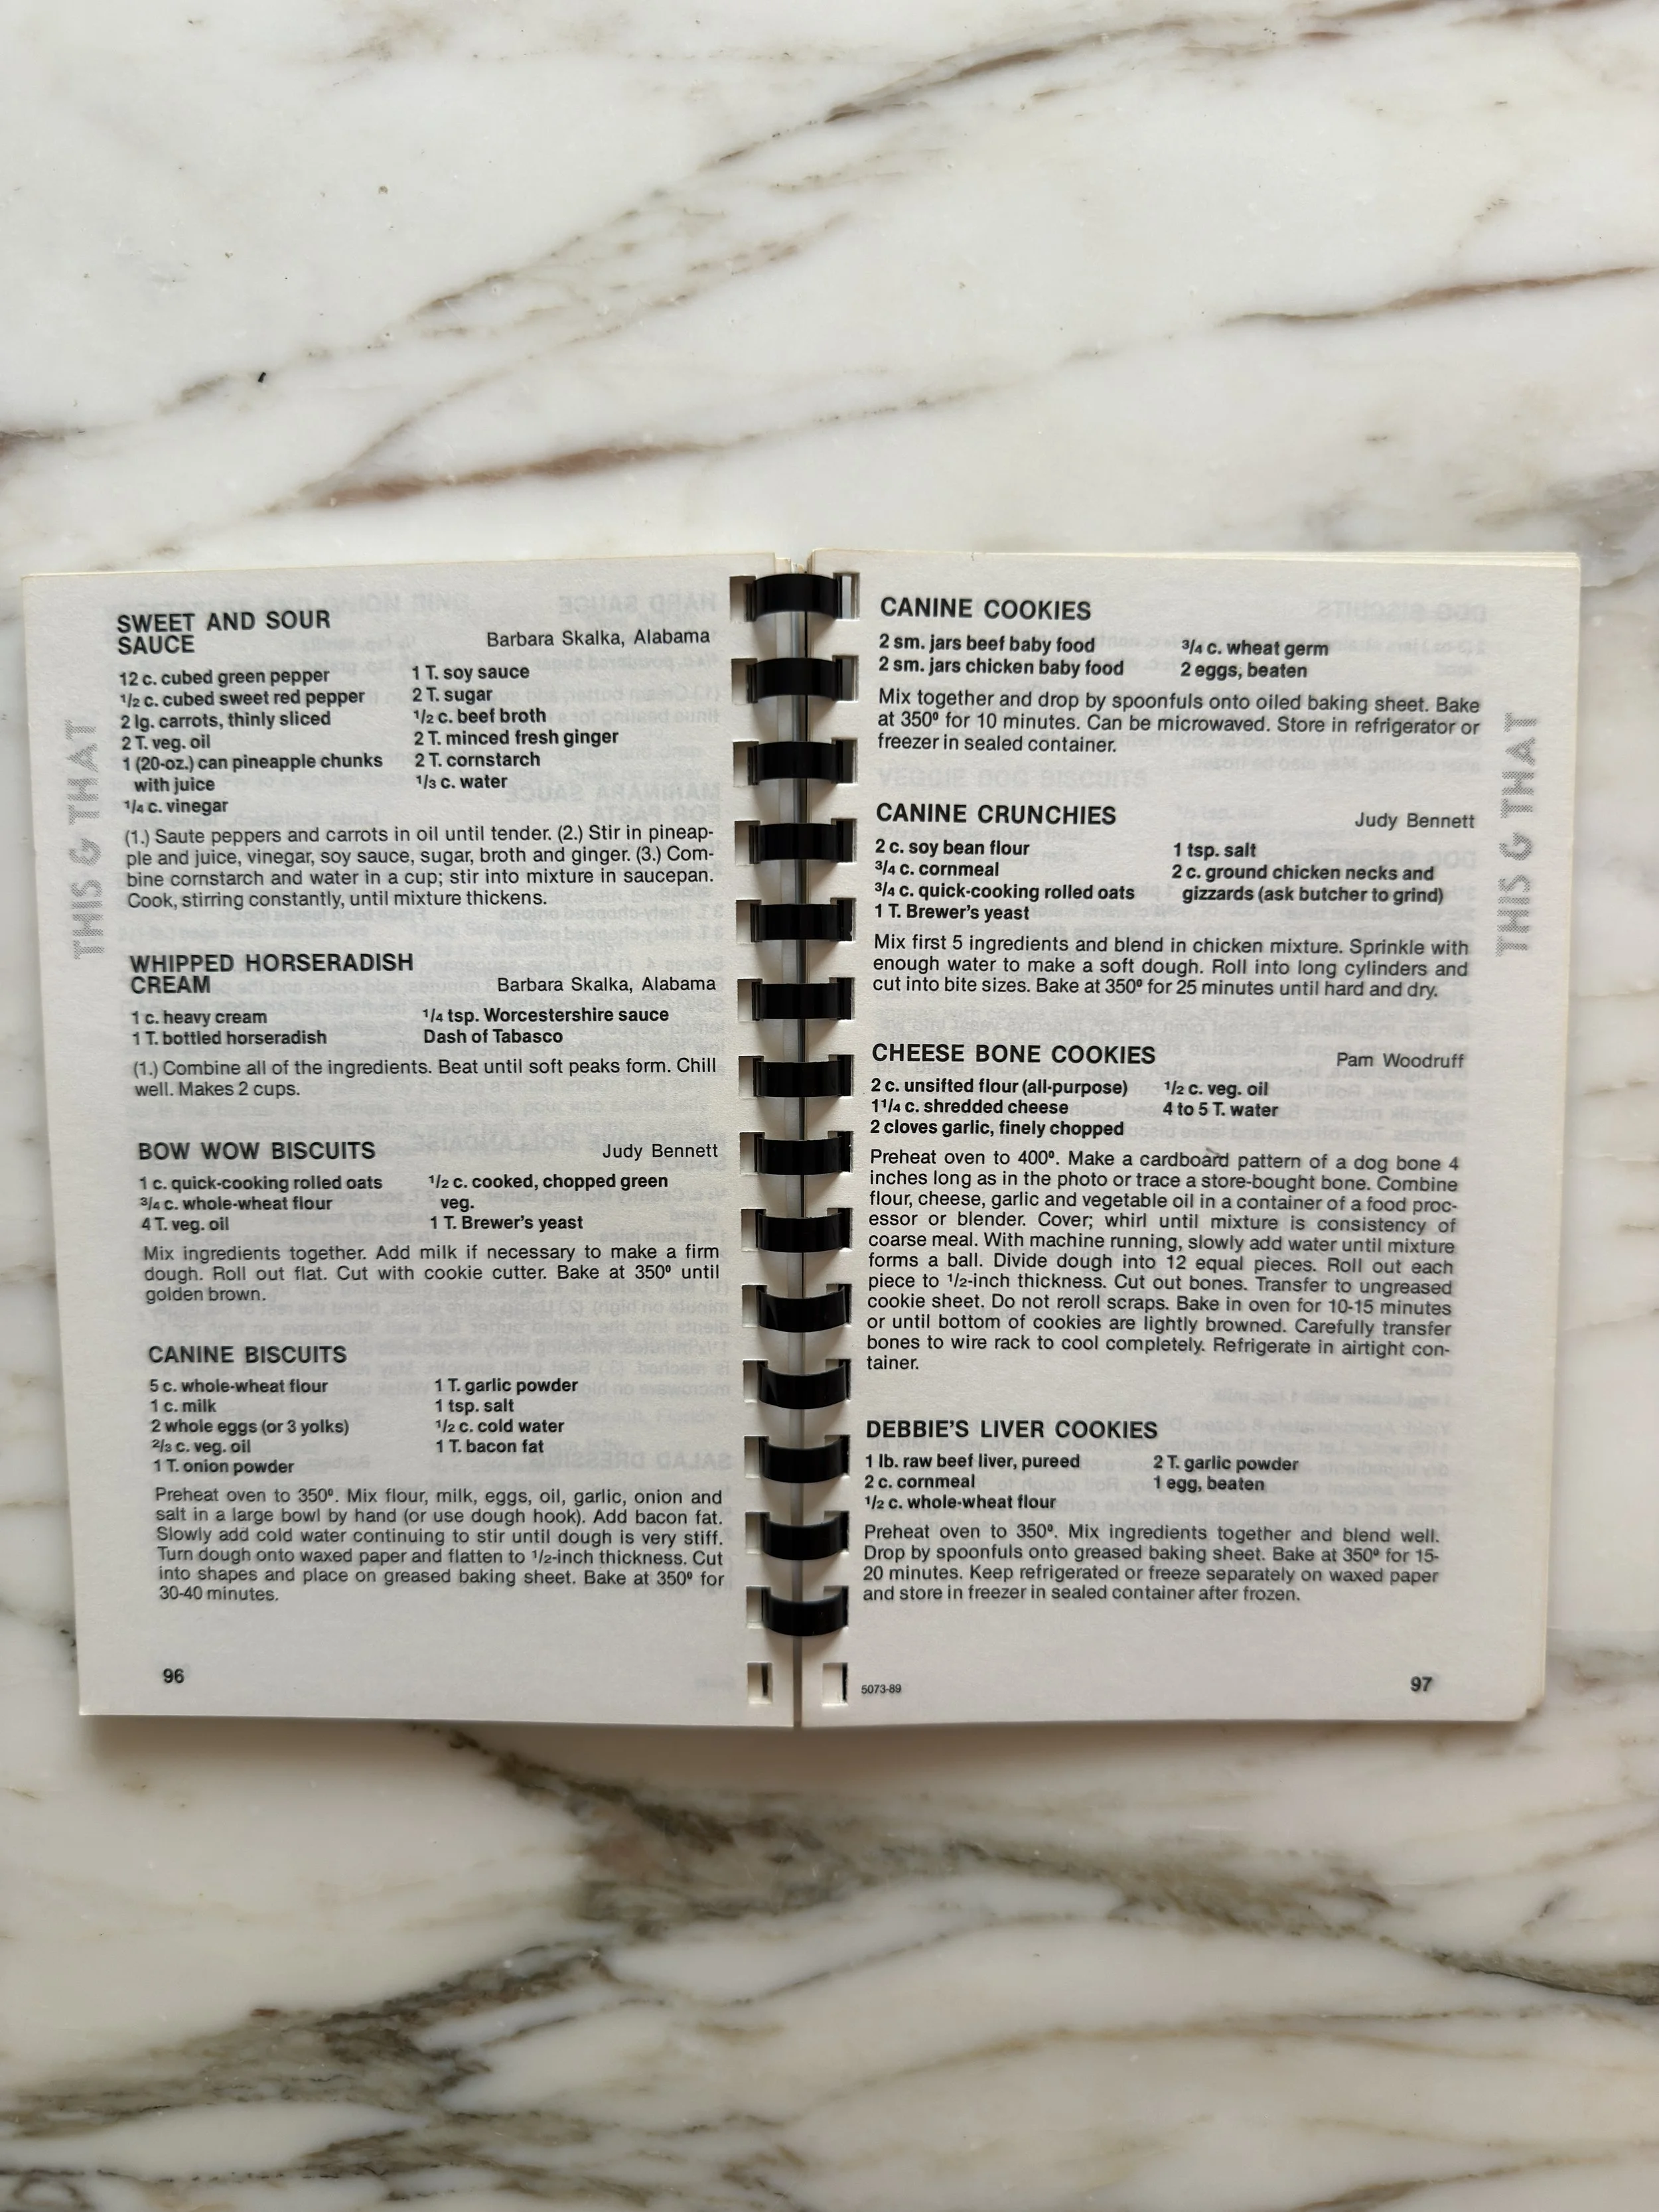 THIS & THAT
SWEET AND SOUR
SAUCE
Barbara Skalka, Alabama
12 c. cubed green pepper
1/2 c. cubed sweet red pepper
2 lg. carrots, thinly sliced
2 T. veg. oil
1 (20-oz.) can pineapple chunks
with juice
1/4 c. vinegar
1 T. soy sauce
2 T. sugar
1/2 c. beef broth
2 T. minced fresh ginger
2 T. cornstarch
1/3 c. water
(1.) Saute peppers and carrots in oil until tender. (2.) Stir in pineap-
ple and juice, vinegar, soy sauce, sugar, broth and ginger. (3.) Com-
bine cornstarch and water in a cup; stir into mixture in saucepan.
Cook, stirring constantly, until mixture thickens.
WHIPPED HORSERADISH
CREAM
Barbara Skalka, Alabama
1 c. heavy cream
1 T. bottled horseradish
1/4 tsp. Worcestershire sauce
Dash of Tabasco
(1.) Combine all of the ingredients. Beat until soft peaks form. Chill
well. Makes 2 cups.
BOW WOW BISCUITS
Judy Bennett
1 c. quick-cooking rolled oats
3/4 c. whole-wheat flour
4 T. veg. oil
1/2 c. cooked, chopped green
veg.
1 T. Brewer's yeast
Mix ingredients together. Add milk if necessary to make a firm
dough. Roll out flat. Cut with cookie cutter. Bake at 350º until
golden brown.
CANINE BISCUITS
5 c. whole-wheat flour
1 c. milk
2 whole eggs (or 3 yolks)
2/3 c. veg. oil
1 T. onion powder
1 T. garlic powder
1 tsp. salt
1/2 c. cold water
1 T. bacon fat
Preheat oven to 350º. Mix flour, milk, eggs, oil, garlic, onion and
salt in a large bowl by hand (or use dough hook). Add bacon fat.
Slowly add cold water continuing to stir until dough is very stiff.
Turn dough onto waxed paper and flatten to 1/2-inch thickness. Cut
into shapes and place on greased baking sheet. Bake at 350º for
30-40 minutes.
96
CANINE COOKIES
2 sm. jars beef baby food
2 sm. jars chicken baby food
3/4 c. wheat germ
2 eggs, beaten
Mix together and drop by spoonfuls onto oiled baking sheet. Bake
at 350º for 10 minutes. Can be microwaved. Store in refrigerator or
freezer in sealed container.
CANINE CRUNCHIES
Judy Bennett
2 c. soy bean flour
3/4 c. cornmeal
3/4 c. quick-cooking rolled oats
1 T. Brewer's yeast
1 tsp. salt
2 c. ground chicken necks and
gizzards (ask butcher to grind)
Mix first 5 ingredients and blend in chicken mixture. Sprinkle with
enough water to make a soft dough. Roll into long cylinders and
cut into bite sizes. Bake at 350º for 25 minutes until hard and dry.
CHEESE BONE COOKIES
Pam Woodruff
2 c. unsifted flour (all-purpose)
1 1/4 c. shredded cheese
2 cloves garlic, finely chopped
1/2 c. veg. oil
4 to 5 T. water
Preheat oven to 400º. Make a cardboard pattern of a dog bone 4
inches long as in the photo or trace a store-bought bone. Combine
flour, cheese, garlic and vegetable oil in a container of a food proc-
essor or blender. Cover; whirl until mixture is consistency of
coarse meal. With machine running, slowly add water until mixture
forms a ball. Divide dough into 12 equal pieces. Roll out each
piece to 1/2-inch thickness. Cut out bones. Transfer to ungreased
cookie sheet. Do not reroll scraps. Bake in oven for 10-15 minutes
or until bottom of cookies are lightly browned. Carefully transfer
bones to wire rack to cool completely. Refrigerate in airtight con-
tainer.
DEBBIE'S LIVER COOKIES
1 lb. raw beef liver, pureed
2 c. cornmeal
1/2 c. whole-wheat flour
2 T. garlic powder
1 egg, beaten
Preheat oven to 350º. Mix ingredients together and blend well.
Drop by spoonfuls onto greased baking sheet. Bake at 350º for 15-
20 minutes. Keep refrigerated or freeze separately on waxed paper
and store in freezer in sealed container after frozen.
5073-89
97
THIS & THAT